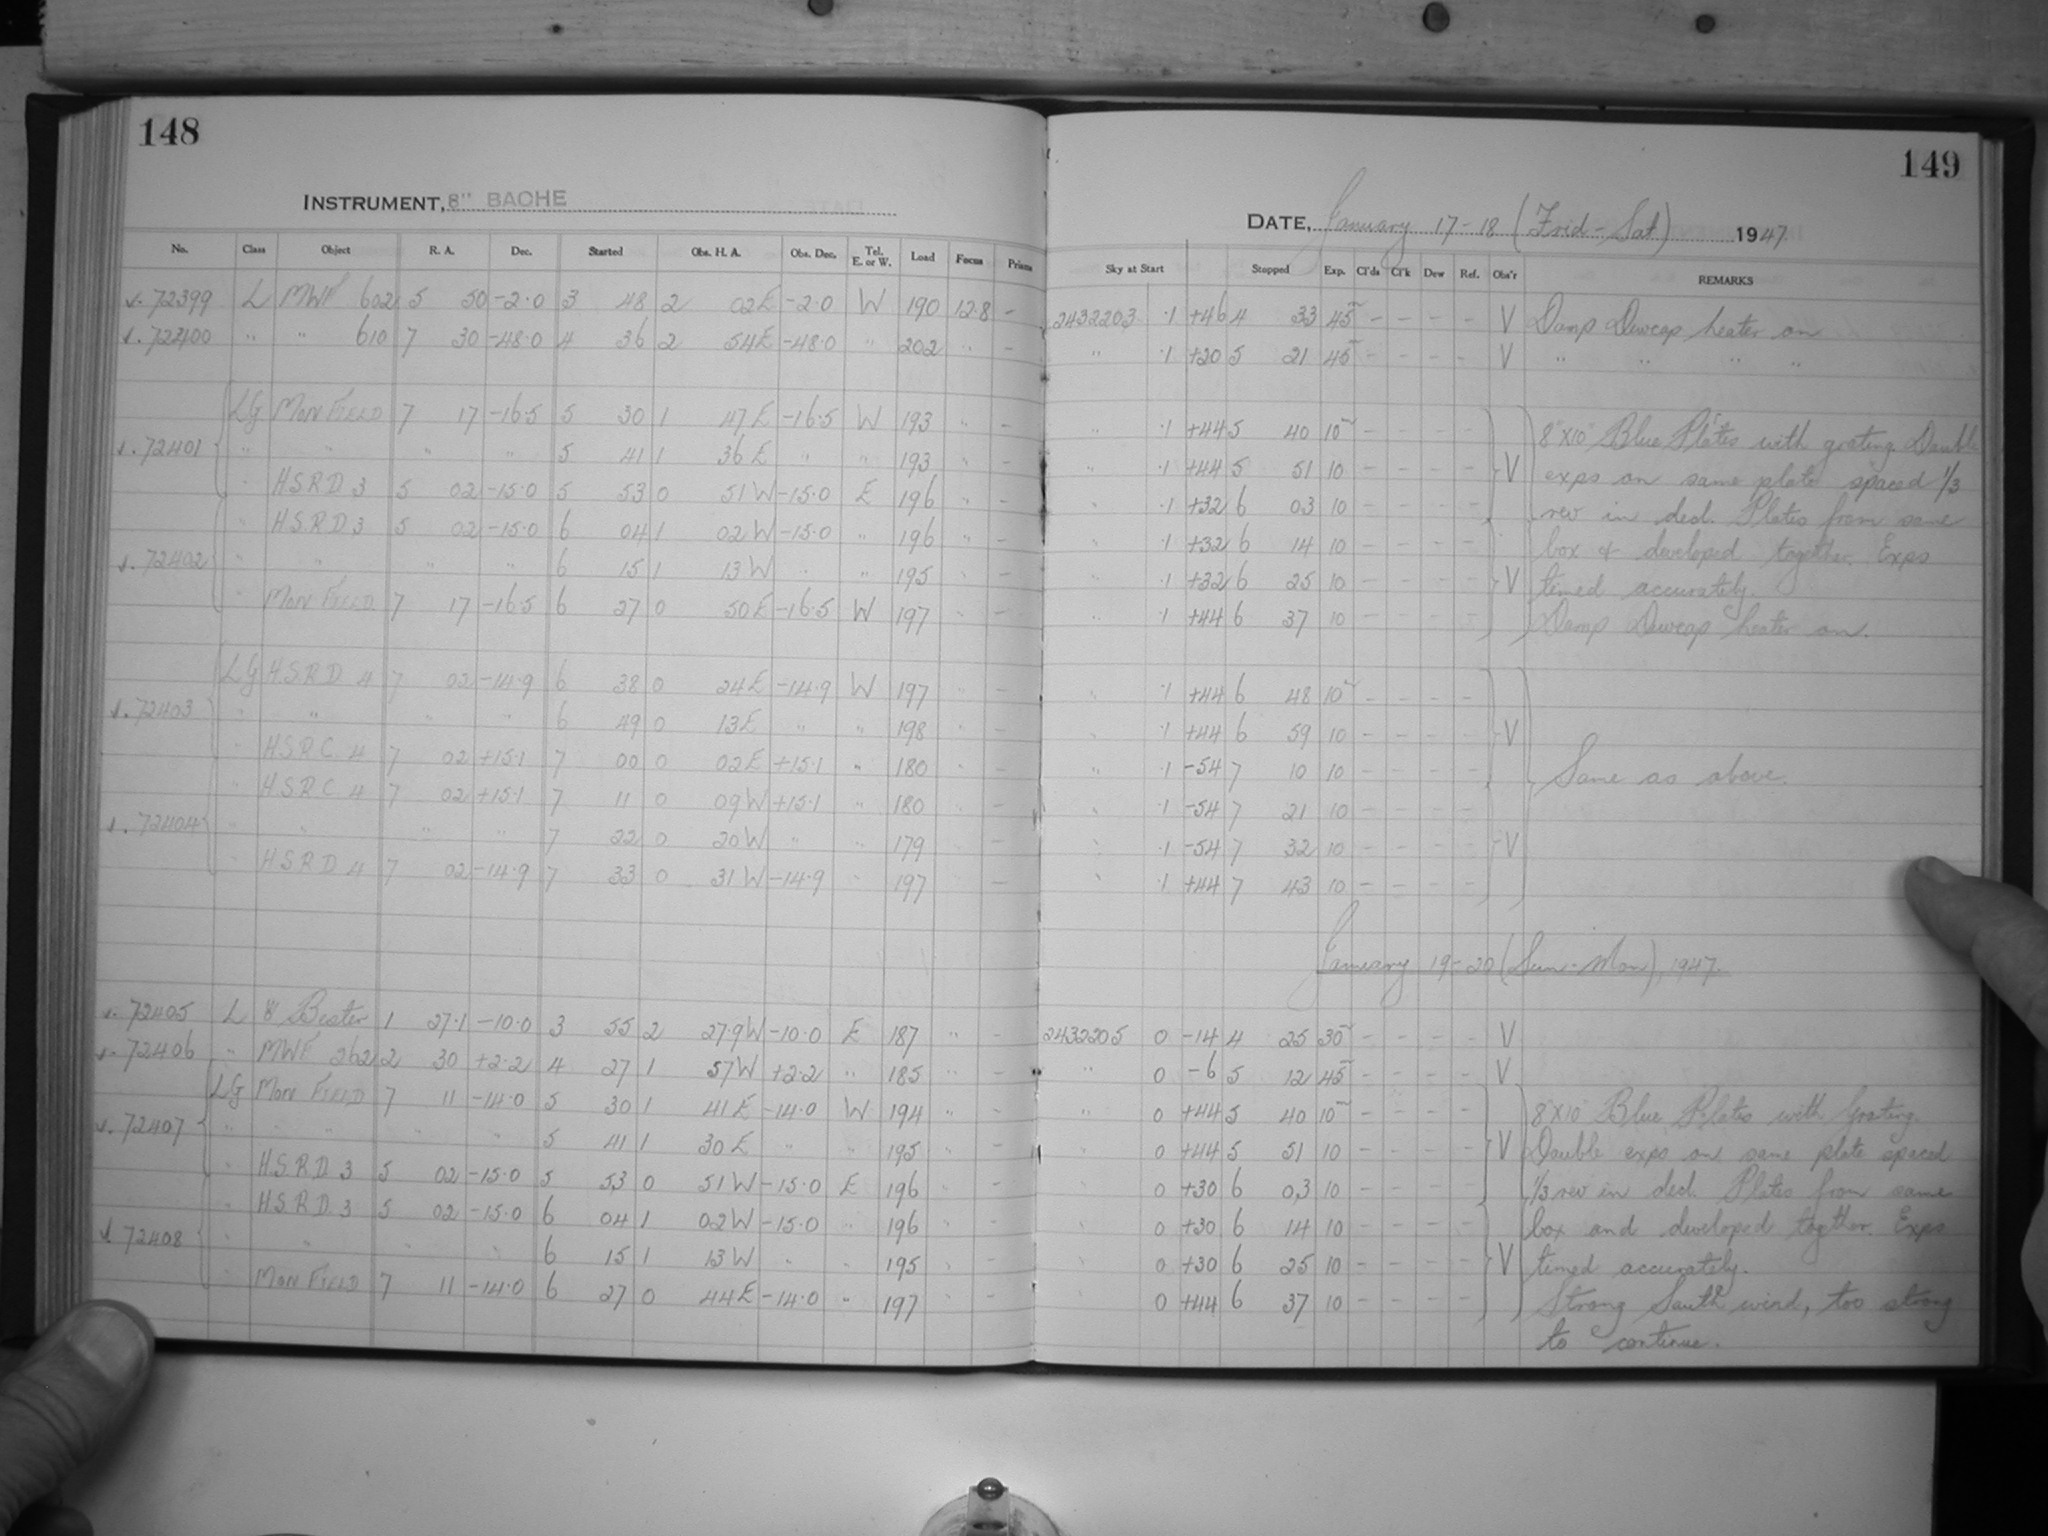 148
INSTRUMENT, 8" BACHE
No. Class Object R. A. Dec. Started Obs. H. A. Obs. Dec. Tel. E. or W. Load Focus Prisms
72399 L MWF 602 5 50 -2.0 3 48 2 02E -2.0 W 190 12.8 -
72400 " " 610 7 30 -48.0 4 36 2 54E -48.0 " 202 " -
LG MON FIELD 7 17 -16.5 5 30 1 47E -16.5 W 193 " -
72401 " " " " 5 41 1 36E " " 193 " -
" HSRD 3 5 02 -15.0 5 53 0 51W -15.0 E 196 " -
" HSRD 3 5 02 -15.0 6 04 1 02W -15.0 " 196 " -
72402 " " " " 6 15 1 13W " " 195 " -
" MON FIELD 7 17 -16.5 6 27 0 50E -16.5 W 197 " -
LG HSRD 4 7 02 -14.9 6 38 0 24E -14.9 W 197 " -
72403 " " " " 6 49 0 13E " " 198 " -
" HSRC 4 7 02 +15.1 7 00 0 02E +15.1 " 180 " -
" HSRC 4 7 02 +15.1 7 11 0 09W +15.1 " 180 " -
72404 " " " " 7 22 0 20W " " 179 " -
" HSRD 4 7 02 -14.9 7 33 0 31W -14.9 " 197 " -
72405 L Bester 1 27.1 -10.0 3 55 2 27.9W -10.0 E 187 " -
72406 " MWF 262 2 30 +2.2 4 27 1 57W +2.2 " 185 " -
LG MON FIELD 7 11 -14.0 5 30 1 41E -14.0 W 194 " -
72407 " " " " 5 41 1 30E " " 195 " -
" HSRD 3 5 02 -15.0 5 53 0 51W -15.0 E 196 " -
" HSRD 3 5 02 -15.0 6 04 1 02W -15.0 " 196 " -
72408 " " " " 6 15 1 13W " " 195 " -
" MON FIELD 7 11 -14.0 6 27 0 44E -14.0 " 197 " -
149
DATE, January 17-18 (Frid-Sat) 1947
Sky at Start Stopped Exp. Cl'ds Cl'k Dew Ref. Obs'r REMARKS
2432203 .1 +46 4 33 45m - - - - V Damp Dewcap heater on
" .1 +20 5 21 45 - - - - V " " " "
" .1 +44 5 40 10m - - - - 8"X10" Blue Plates with grating. Double
" .1 +44 5 51 10 - - - - V exps on same plate spaced 1/3
" .1 +32 6 03 10 - - - - rev in decl. Plates from same
" .1 +32 6 14 10 - - - - box & developed together. Exps
" .1 +32 6 25 10 - - - - V timed accurately.
" .1 +44 6 37 10 - - - - Damp Dewcap heater on.
" .1 +44 6 48 10m - - - -
" .1 +44 6 59 10 - - - - V
" .1 -54 7 10 10 - - - - Same as above.
" .1 -54 7 21 10 - - - -
" .1 -54 7 32 10 - - - - V
" .1 +44 7 43 10 - - - -
January 19-20 (Sun-Mon), 1947
2432205 0 -14 4 25 30m - - - - V
" 0 -6 5 12 45 - - - - V
" 0 +44 5 40 10m - - - - 8"X10" Blue Plates with Grating.
" 0 +44 5 51 10 - - - - V Double exps on same plate spaced
" 0 +30 6 03 10 - - - - 1/3 rev in decl. Plates from same
" 0 +30 6 14 10 - - - - box and developed together. Exps
" 0 +30 6 25 10 - - - - V timed accurately.
" 0 +44 6 37 10 - - - - Strong South wind, too strong
to continue.